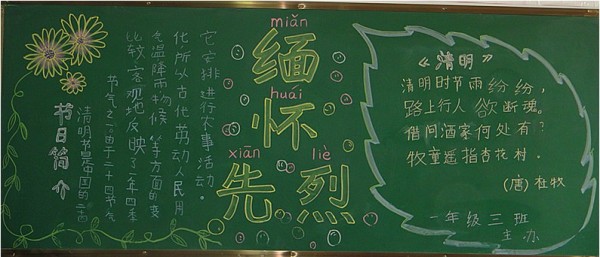 节日简介
清明节是中国的二十四
节气之一。由于二十四节气
比较客观地反映了一年四季
气温降雨物候等方面的变
化所以古代劳动人民用
它安排进行农事活动。
miǎn
缅
huái
怀
xiān liè
先烈
《清明》
清明时节雨纷纷,
路上行人欲断魂。
借问酒家何处有?
牧童遥指杏花村。
(唐)杜牧
一年级三班
主办